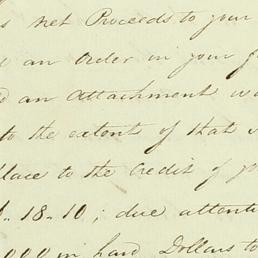 net Proceeds to your
an order in your
an attachment
to the extent of that
place to the Credit of
18..10; due attenti
000 in hard Dollars to